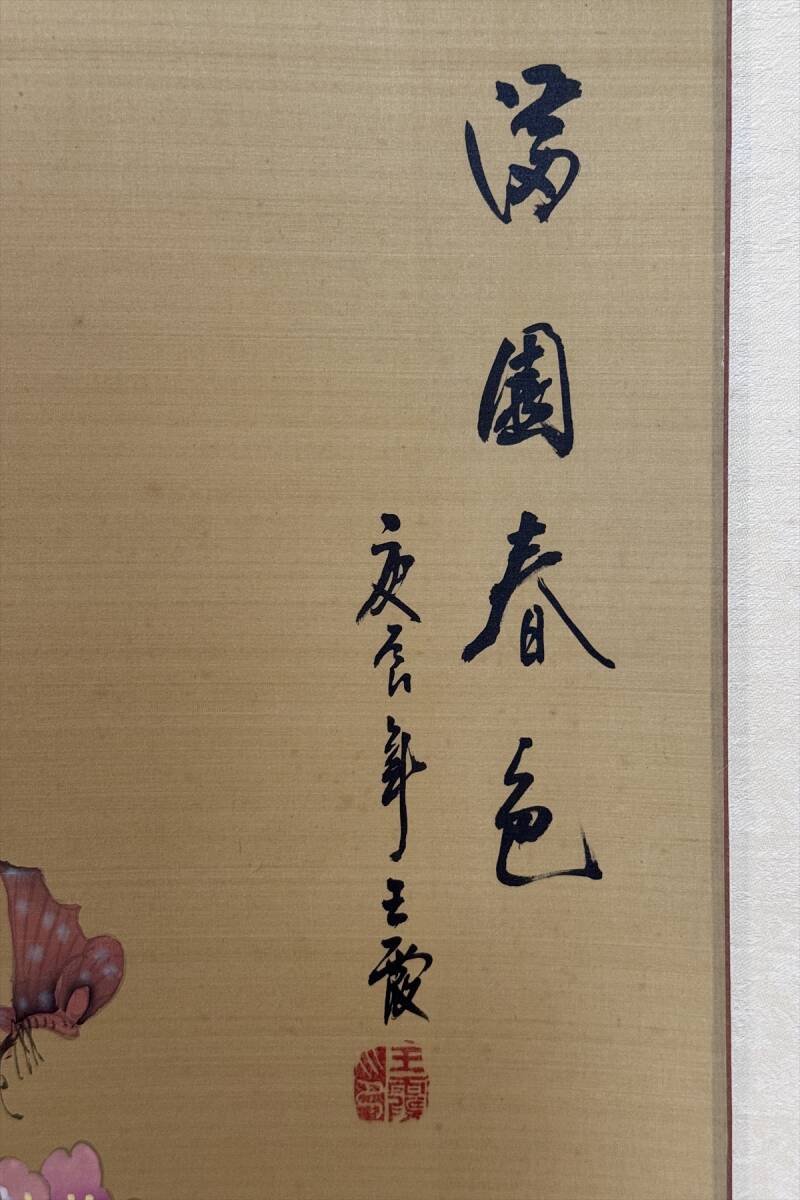 满園春色
庚辰年王霞
王霞